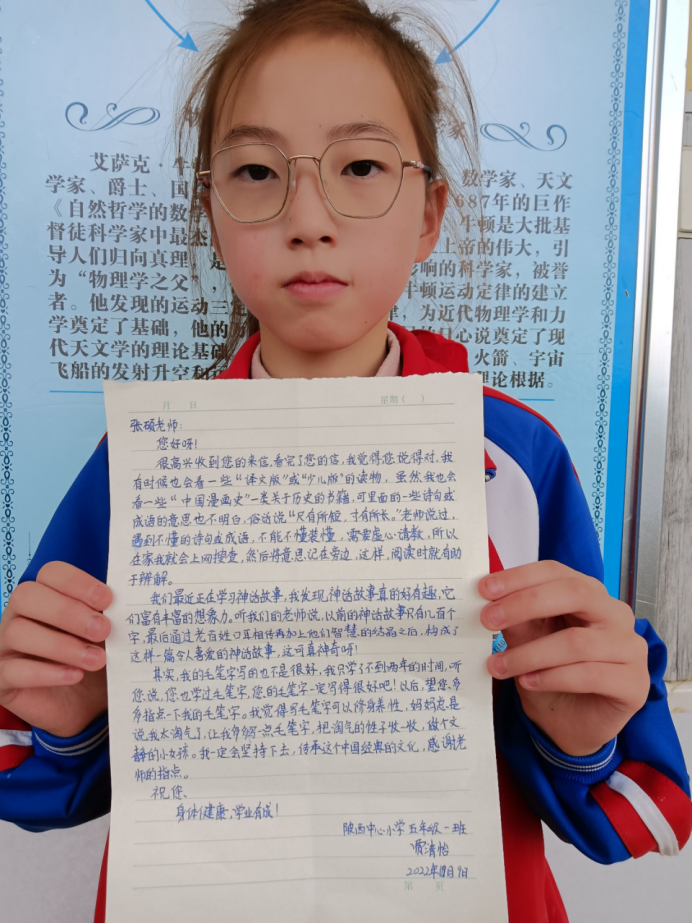 艾萨克·牛
家
学家、爵士、国
数学家、天文
《自然哲学的数学
687年的巨作
督徒科学家中最杰
牛顿是大批基
导人们归向真理
上帝的伟大，引
为“物理学之父”，
影响的科学家，被誉
者。他发现的运动三定
牛顿运动定律的建立
学奠定了基础，他的万
律，为近代物理学和力
代天文学的理论基础
日心说奠定了现
飞船的发射升空和
火箭、宇宙
理论根据。
月 日 星期（ ）
张硕老师：
您好呀！
很高兴收到您的来信，看完了您的信，我觉得您说得对，我
有时候也会看一些“译文版”或“少儿版”的读物，虽然，我也会
看一些“中国漫画史”一类关于历史的书籍，可里面的一些诗句或
成语的意思也不明白，俗话说“尺有所短，寸有所长。”老师说过，
遇到不懂的诗句或成语，不能不懂装懂，需要虚心请教，所以
在家我就会上网搜查，然后将意思记在旁边，这样，阅读时就有助
于辨解。
我们最近正在学习神话故事，我发现，神话故事真的好有趣，它
们富有丰富的想象力。听我们的老师说，以前的神话故事只有几百个
字，最后通过老百姓口耳相传再加上他们智慧的结晶之后，构成了
这样一篇令人喜爱的神话故事，这可真神奇呀！
其实，我的毛笔字写的也不是很好，我只学了不到两年的时间，听
您说，您也学过毛笔字，您的毛笔字一定写得很好吧！以后，望您多
多指点一下我的毛笔字。我觉得写毛笔字可以修身养性，妈妈总是
说我太淘气了，让我多练一点毛笔字，把淘气的性子收一收，做个文
静的小女孩。我一定会坚持下去，传承这个中国经典的文化，感谢老
师的指点。
祝您、
身体健康，学业有成！
陂西中心小学五年级一班
贾清怡
2022年月9日
第 页